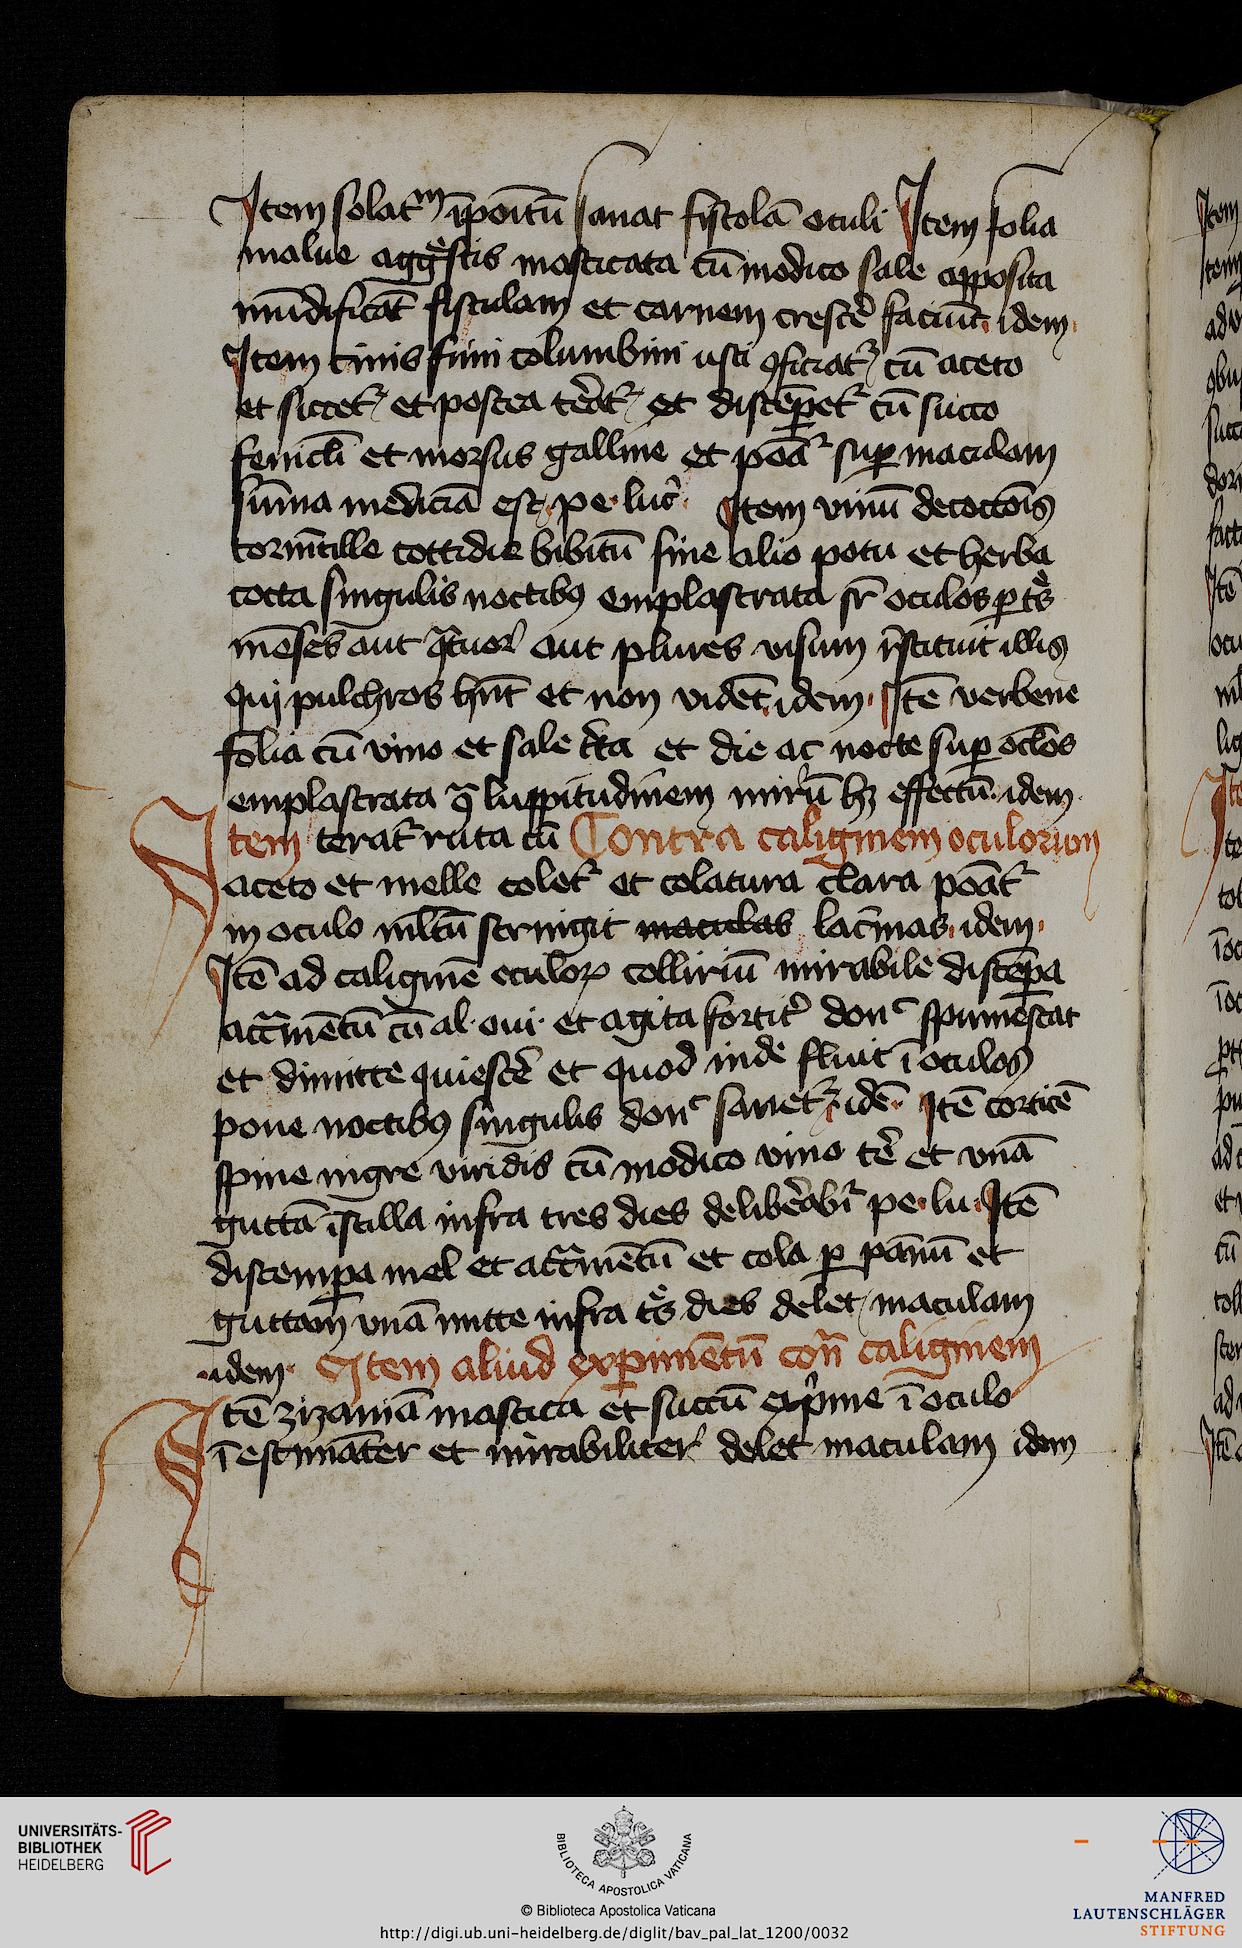 Item solatrm īpoītū sanat fistolā oculi Item folia
malue aggestis masticata cū modico sale apposita
mūdificāt fisculam et carnem crescē faciūt idem
Item cinis fimi columbini usti ꝯficiatr cū aceto
et siccetr et postea terātr et discēpetr cū succo
fenicli et morsus galline et poār sup maculam
sūma medicīa est pe luc Item vinū decoctōis
tormētille cottidie bibitū sine alio potu et herba
cocta singulis noctibꝰ emplastrata sr oculos p̱ ts̄
mēses aut qtuor aut plures visum rstituit illis
qui pulchros hn̄t et non vidēt idem Itē verbene
folia cū vino et sale tr̄ta et die ac nocte sup oclōs
emplastrata ꝯ luppitudinem mirū hꝫ effectū idem
Item teratr ruta cū Contra caliginem oculorum
aceto et melle coletr et colatura clara poātr
in oculo mltū stringit maculas lacrīas idem
Itē ad caliginē oculorꝝ collirium mirabile discēpa
attramētū cū al oui et agita fortitr donc spumescat
et dimitte quiescē et quod inde fluit ī oculos
pone noctibꝰ singulis donc sanetr idē Itē corticē
spine nigre viridis cū modico vino tē et vnā
guttā īstilla infra tres dies deliberabīr pe lu Itē
discempa mel et attramētū et cola p̱ pannū et
guttam vnā mitte infra ts̄ dies delet maculam
idem Item aliud exp̱imētū con̄ caliginem
Itē zizaniā mastica et succū exprime ī oculo
et mirabiliter delet maculam idem
Item
UNIVERSITÄTS-
BIBLIOTHEK
HEIDELBERG
BIBLIOTECA APOSTOLICA VATICANA
© Biblioteca Apostolica Vaticana
http://digi.ub.uni-heidelberg.de/diglit/bav_pal_lat_1200/0032
MANFRED
LAUTENSCHLÄGER
STIFTUNG